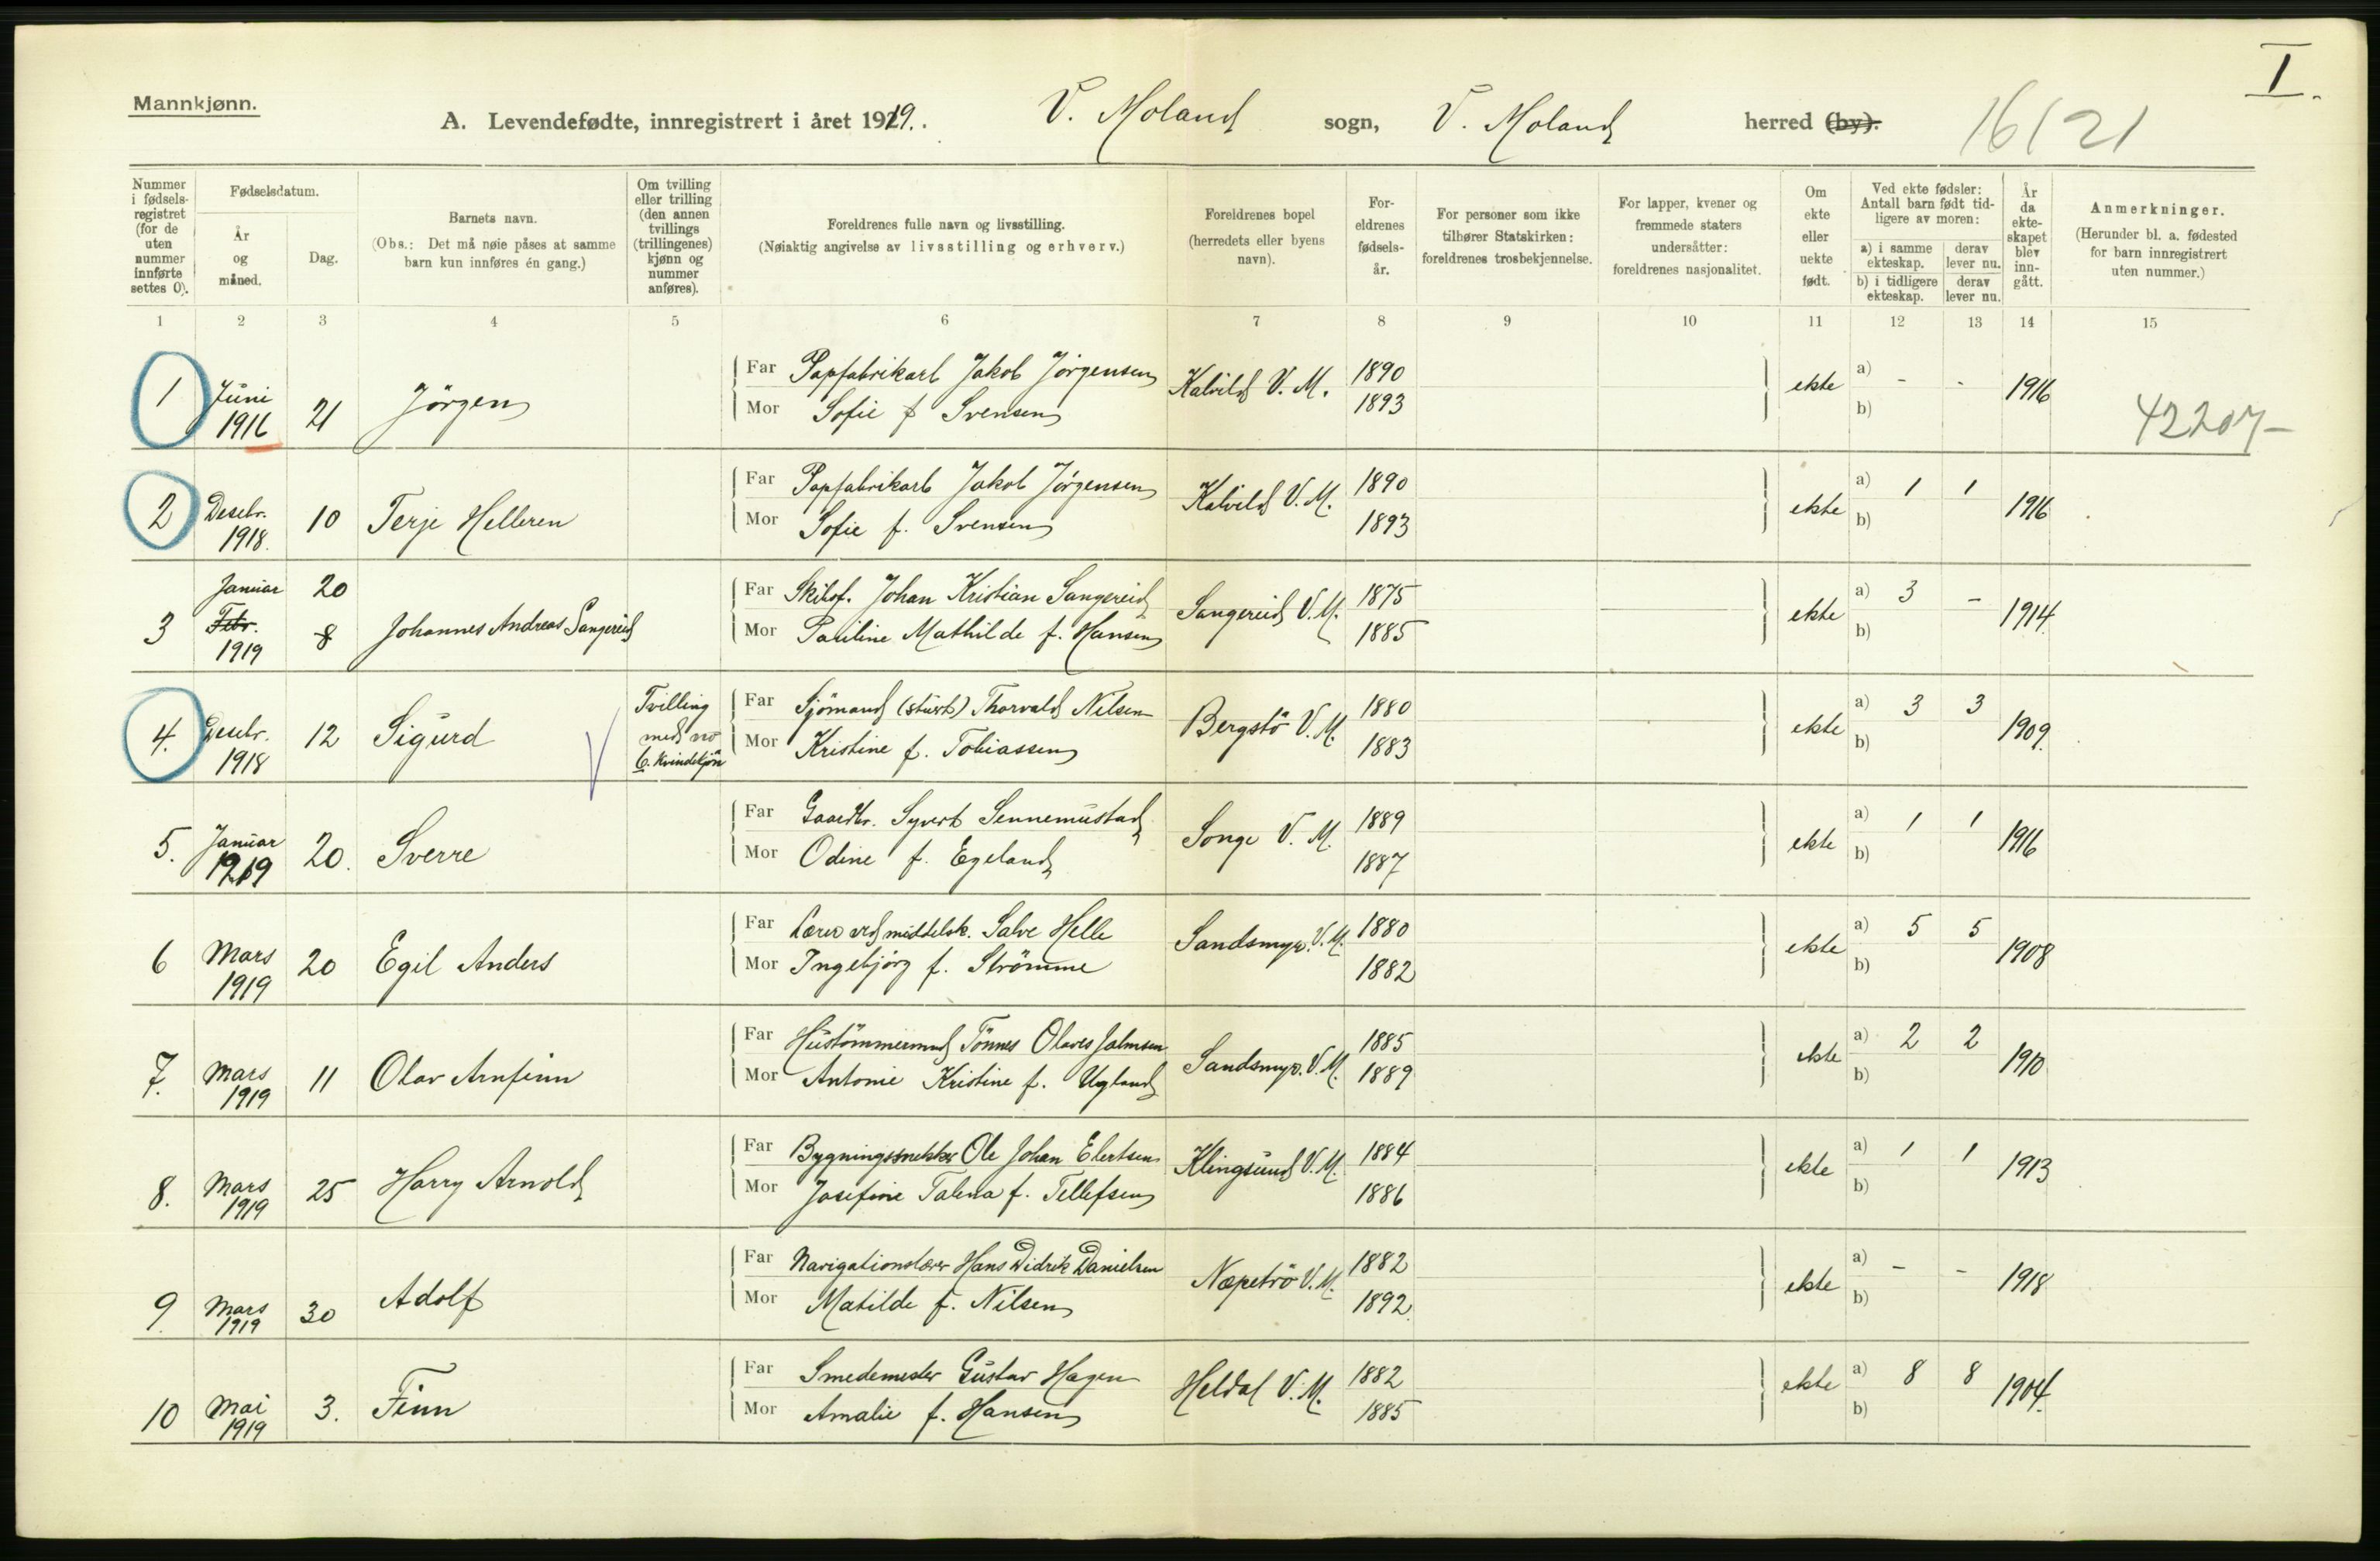 I.
Mannkjønn.
A. Levendefødte, innregistrert i året 1919. V. Moland sogn, V. Moland herred (by). 16/21
Nummer i fødsels-registret (for de uten nummer innførte settes 0).
Fødselsdatum.
År og måned.
Dag.
Barnets navn.
(Obs.: Det må nøie påses at samme barn kun innføres én gang.)
Om tvilling eller trilling (den annen tvillings (trillingenes) kjønn og nummer anføres).
Foreldrenes fulle navn og livsstilling.
(Nøiaktig angivelse av livsstilling og erhverv.)
Foreldrenes bopel (herredets eller byens navn).
For-eldrenes fødsels-år.
For personer som ikke tilhører Statskirken: foreldrenes trosbekjennelse.
For lapper, kvener og fremmede staters undersåtter: foreldrenes nasjonalitet.
Om ekte eller uekte født.
Ved ekte fødsler: Antall barn født tid-ligere av moren:
a) i samme ekteskap.
derav lever nu.
b) i tidligere ekteskap.
derav lever nu.
År da ekte-skapet blev inn-gått.
Anmerkninger.
(Herunder bl. a. fødested for barn innregistrert uten nummer.)
1 2 3 4 5 6 7 8 9 10 11 12 13 14 15
1 Juni 1916 21 Jörgen
Far Papfabrikarb Jakob Jörgensen Kalvild V. M. 1890 ekte a) - - 1916
Mor Sofie f Svensen 1893 b) 42207-
2 Desbr. 1918. 10 Terje Helleren
Far Papfabrikarb Jakob Jörgensen Kalvild V. M. 1890 ekte a) 1 1 1916
Mor Sofie f. Svensen 1893 b)
3 Januar 20 Febr. 8 1919 Johannes Andreas Sangereid
Far Skibsf. Johan Kristian Sangereid Sangereid V. M. 1875 ekte a) 3 - 1914.
Mor Pauline Mathilde f. Hansen 1885 b)
4. Desbr. 1918 12 Sigurd Tvilling med no 6. Kvindekjön
Far Sjömand (stuert) Thorvald Nilsen Bergstö V. M. 1880 ekte a) 3 3 1909.
Mor Kristine f. Tobiassen 1883 b)
5. Januar 1919 20. Sverre
Far Gaardbr. Syvert Sennemustad Songe V. M. 1889 ekte a) 1 1 1916
Mor Odine f. Egeland 1887 b)
6 Mars 1919 20 Egil Anders
Far Lærer ved middelsk. Salve Helle Sandsmyr. V. M. 1880 ekte a) 5 5 1908
Mor Ingebjörg f. Strömme 1882 b)
7. Mars 1919 11 Olav Arnfinn
Far Hustömmermand Tönnes Olaves Jalmsen Sandsmyr. V. M. 1885 ekte a) 2 2 1910
Mor Antonie Kristine f. Ugland 1889 b)
8. Mars 1919 25 Harry Arnold
Far Bygningssnekker Ole Johan Elertsen Klingsund V. M. 1884 ekte a) 1 1 1913
Mor Josefine Talena f. Tellefsen 1886 b)
9 Mars 1919 30 Adolf
Far Navigationslærer Hans Didrik Danielsen Næpetrö V. M. 1882 ekte a) - - 1918
Mor Matilde f. Nilsen 1892. b)
10 Mai 1919 3. Finn
Far Smedemester Gustav Hagen Heldal V. M. 1882 ekte a) 8 8 1904.
Mor Amalie f. Hansen 1885 b)